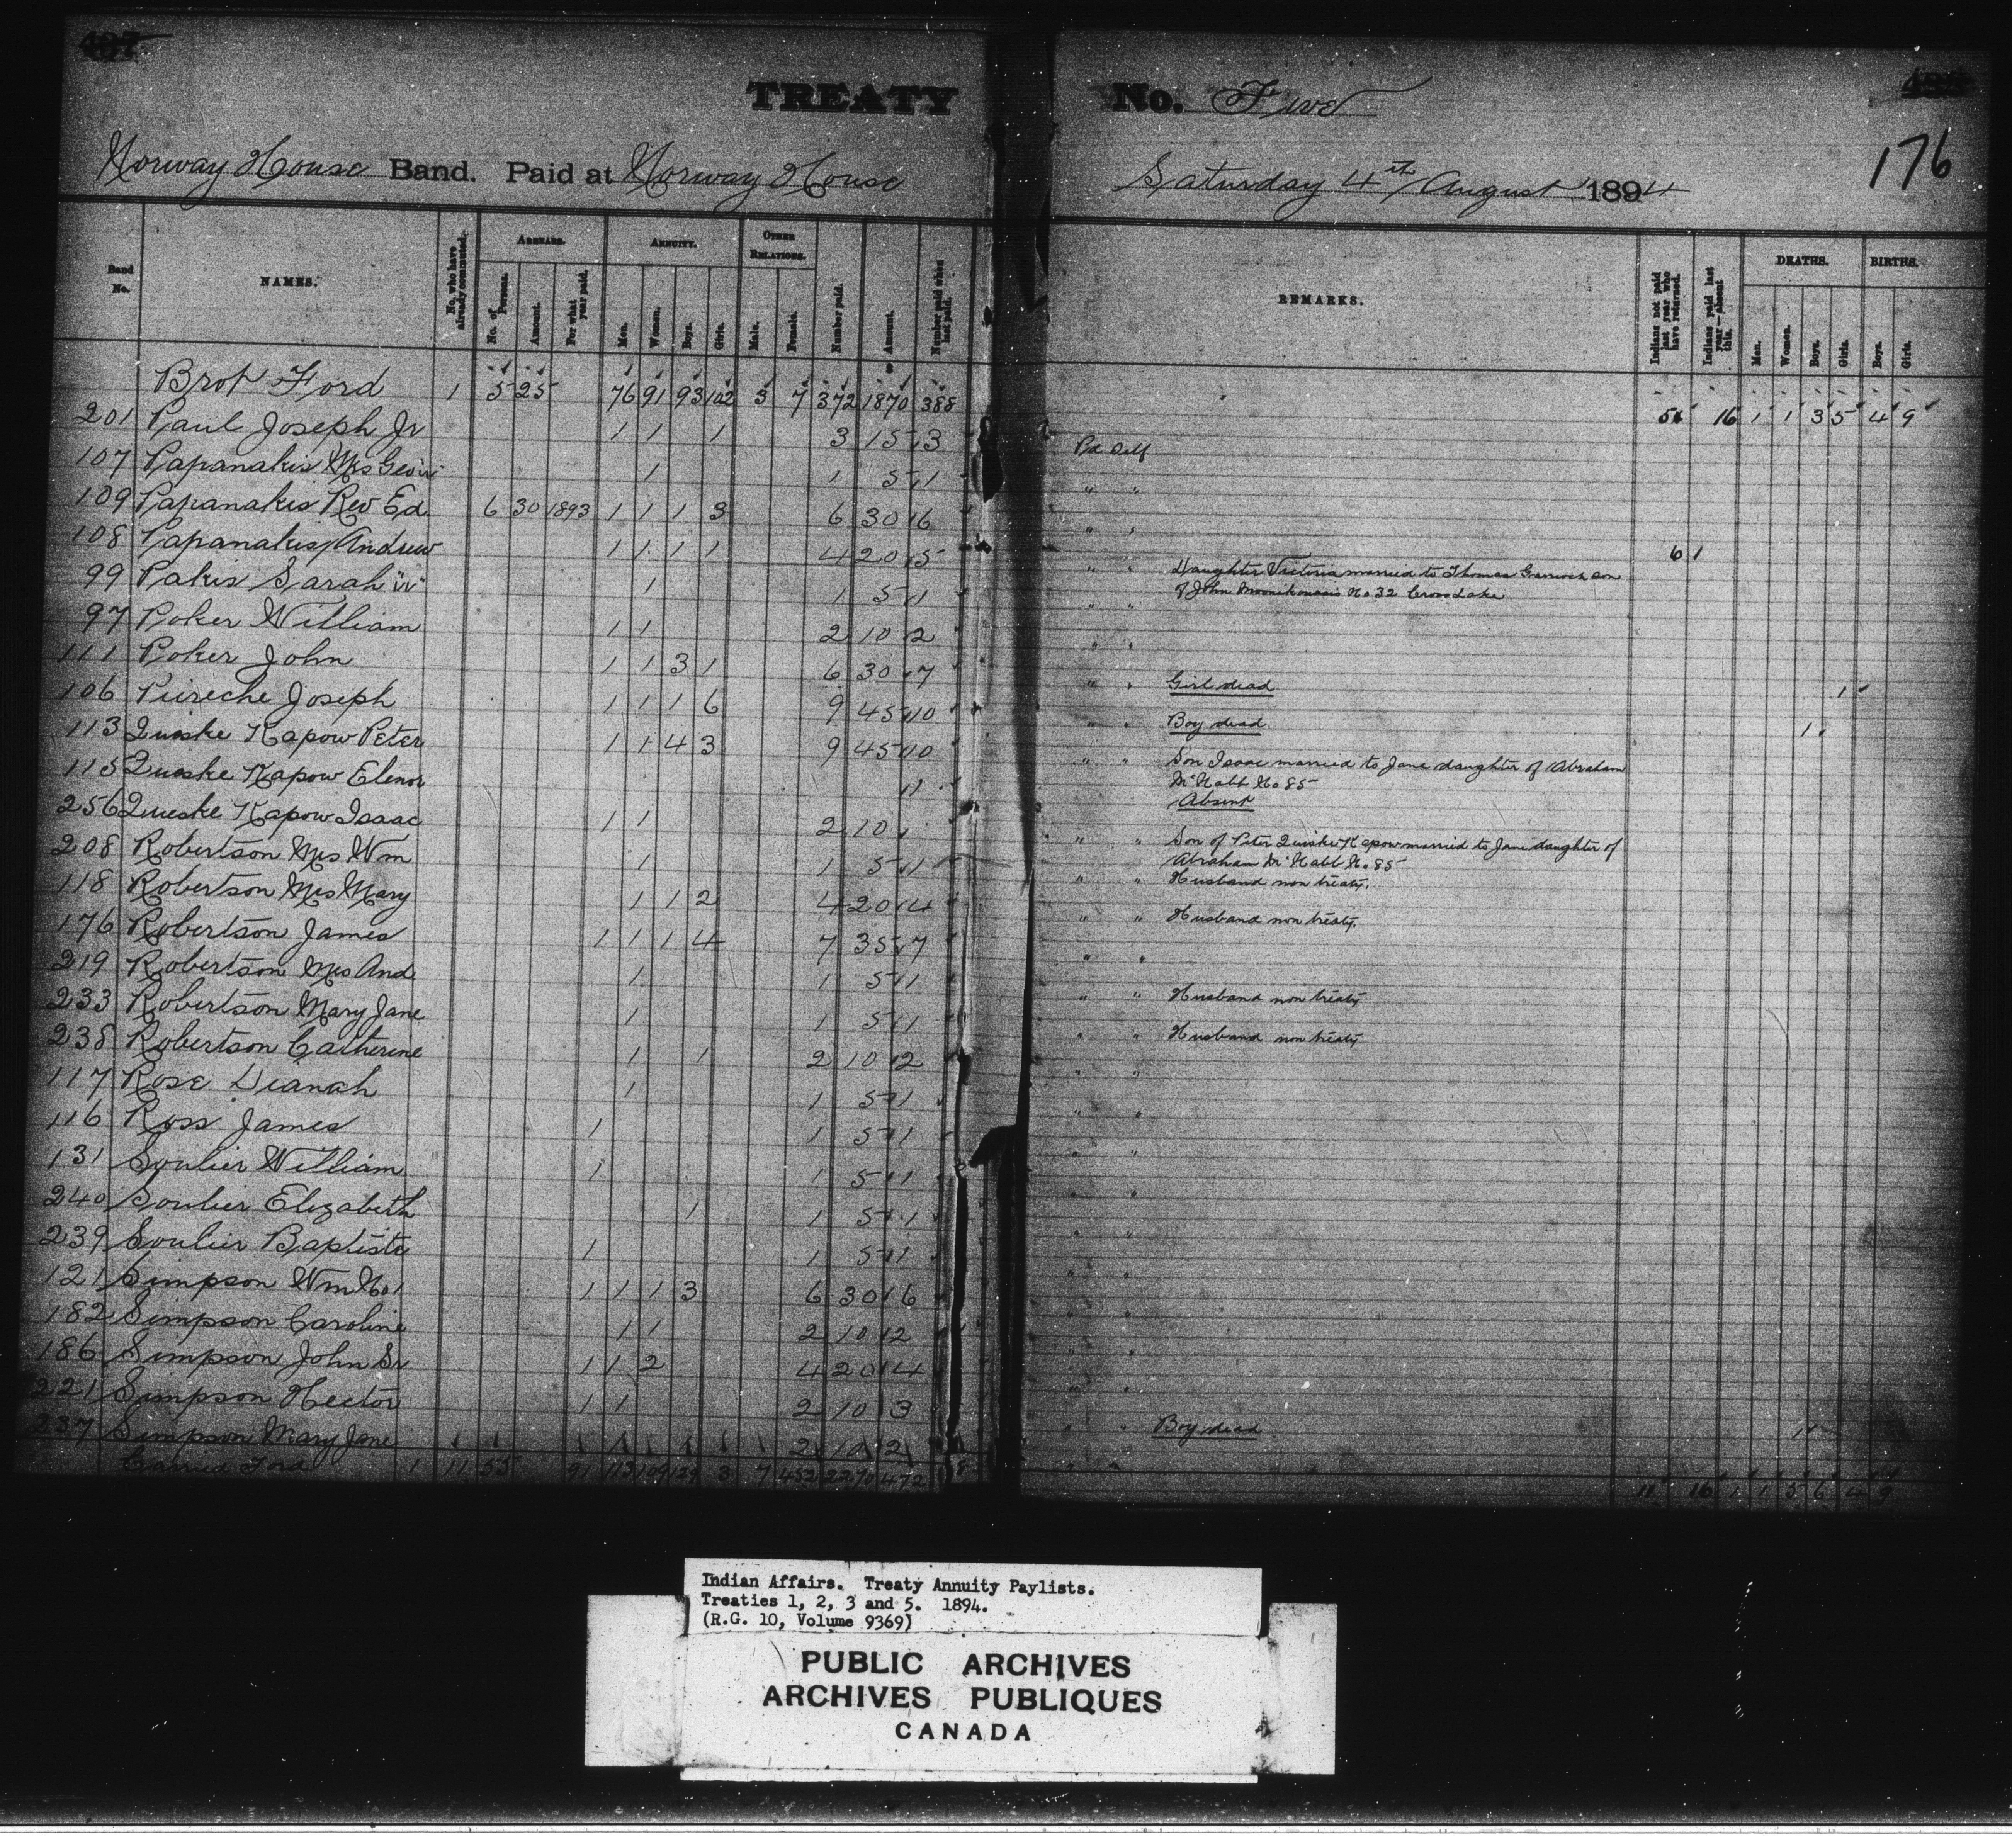 TREATY No. Five
176
Norway House Band. Paid at Norway House Saturday 4th August 1894
Band No. NAMES. No. who have already commuted. ARREARS. No. of Persons. Amount. For what year paid. ANNUITY. Men. Women. Boys. Girls. OTHER RELATIONS. Male. Female. Number paid. Amount. Number paid when last paid. REMARKS. Indians not paid last year who have returned. Indians paid last year—absent this. DEATHS. Men. Women. Boys. Girls. BIRTHS. Boys. Girls.
Brot Ford 1 5 25 76 91 93 102 3 7 372 1870 388 5 16 1 1 3 5 4 9
201 Paul Joseph Jr 1 1 1 3 15 3 Pd Self
107 Papanakis Mrs Geo "w" 1 1 5 1 " "
109 Papanakis Rev Ed. 6 30 1893 1 1 1 3 6 30 6 " " 6
108 Papanakis Andrew 1 1 1 1 4 20 5 " " Daughter Victoria married to Thomas son
of John No 32 Cross Lake
99 Pakis Sarah "w" 1 1 5 1 " "
97 Poker William 1 1 2 10 2 " "
111 Poker John 1 1 3 1 6 30 7 " " Girl dead 1
106 Pureche Joseph 1 1 1 6 9 45 10 " " Boy dead 1
113 Queske Kapow Peter 1 1 4 3 9 45 10 " " Son Isaac married to Jane daughter of Abraham
McNabb No 85
115 Queske Kapow Elenor 1 Absent
256 Queske Kapow Isaac 1 1 2 10 " " Son of Peter Queske Kapow married to Jane daughter of
Abraham McNabb No. 85
208 Robertson Mrs Wm 1 1 5 1 " " Husband non treaty.
118 Robertson Mrs Mary 1 1 2 4 20 4 " " Husband non treaty.
176 Robertson James 1 1 1 4 7 35 7 " "
219 Robertson Mrs And 1 1 5 1 " " Husband non treaty
233 Robertson Mary Jane 1 1 5 1 " " Husband non treaty
238 Robertson Catherine 1 1 2 10 2 " "
117 Rose Dianah 1 1 5 1 " "
116 Ross James 1 1 5 1 " "
131 Soulier William 1 1 5 1 " "
240 Soulier Elizabeth 1 1 5 1 " "
239 Soulier Baptiste 1 1 5 1 " "
121 Simpson Wm No 1 1 1 1 3 6 30 6 " "
182 Simpson Caroline 1 1 2 10 2 " "
186 Simpson John Sr 1 1 2 4 20 4 " "
221 Simpson Hector 1 1 2 10 3 " " Boy dead 1
237 Simpson Mary Jane 2 10 2 " "
Carried Ford 1 11 55 91 113 109 129 3 7 452 2290 472 11 16 1 1 5 6 4 9
Indian Affairs. Treaty Annuity Paylists.
Treaties 1, 2, 3 and 5. 1894.
(R.G. 10, Volume 9369)
PUBLIC ARCHIVES
ARCHIVES PUBLIQUES
CANADA